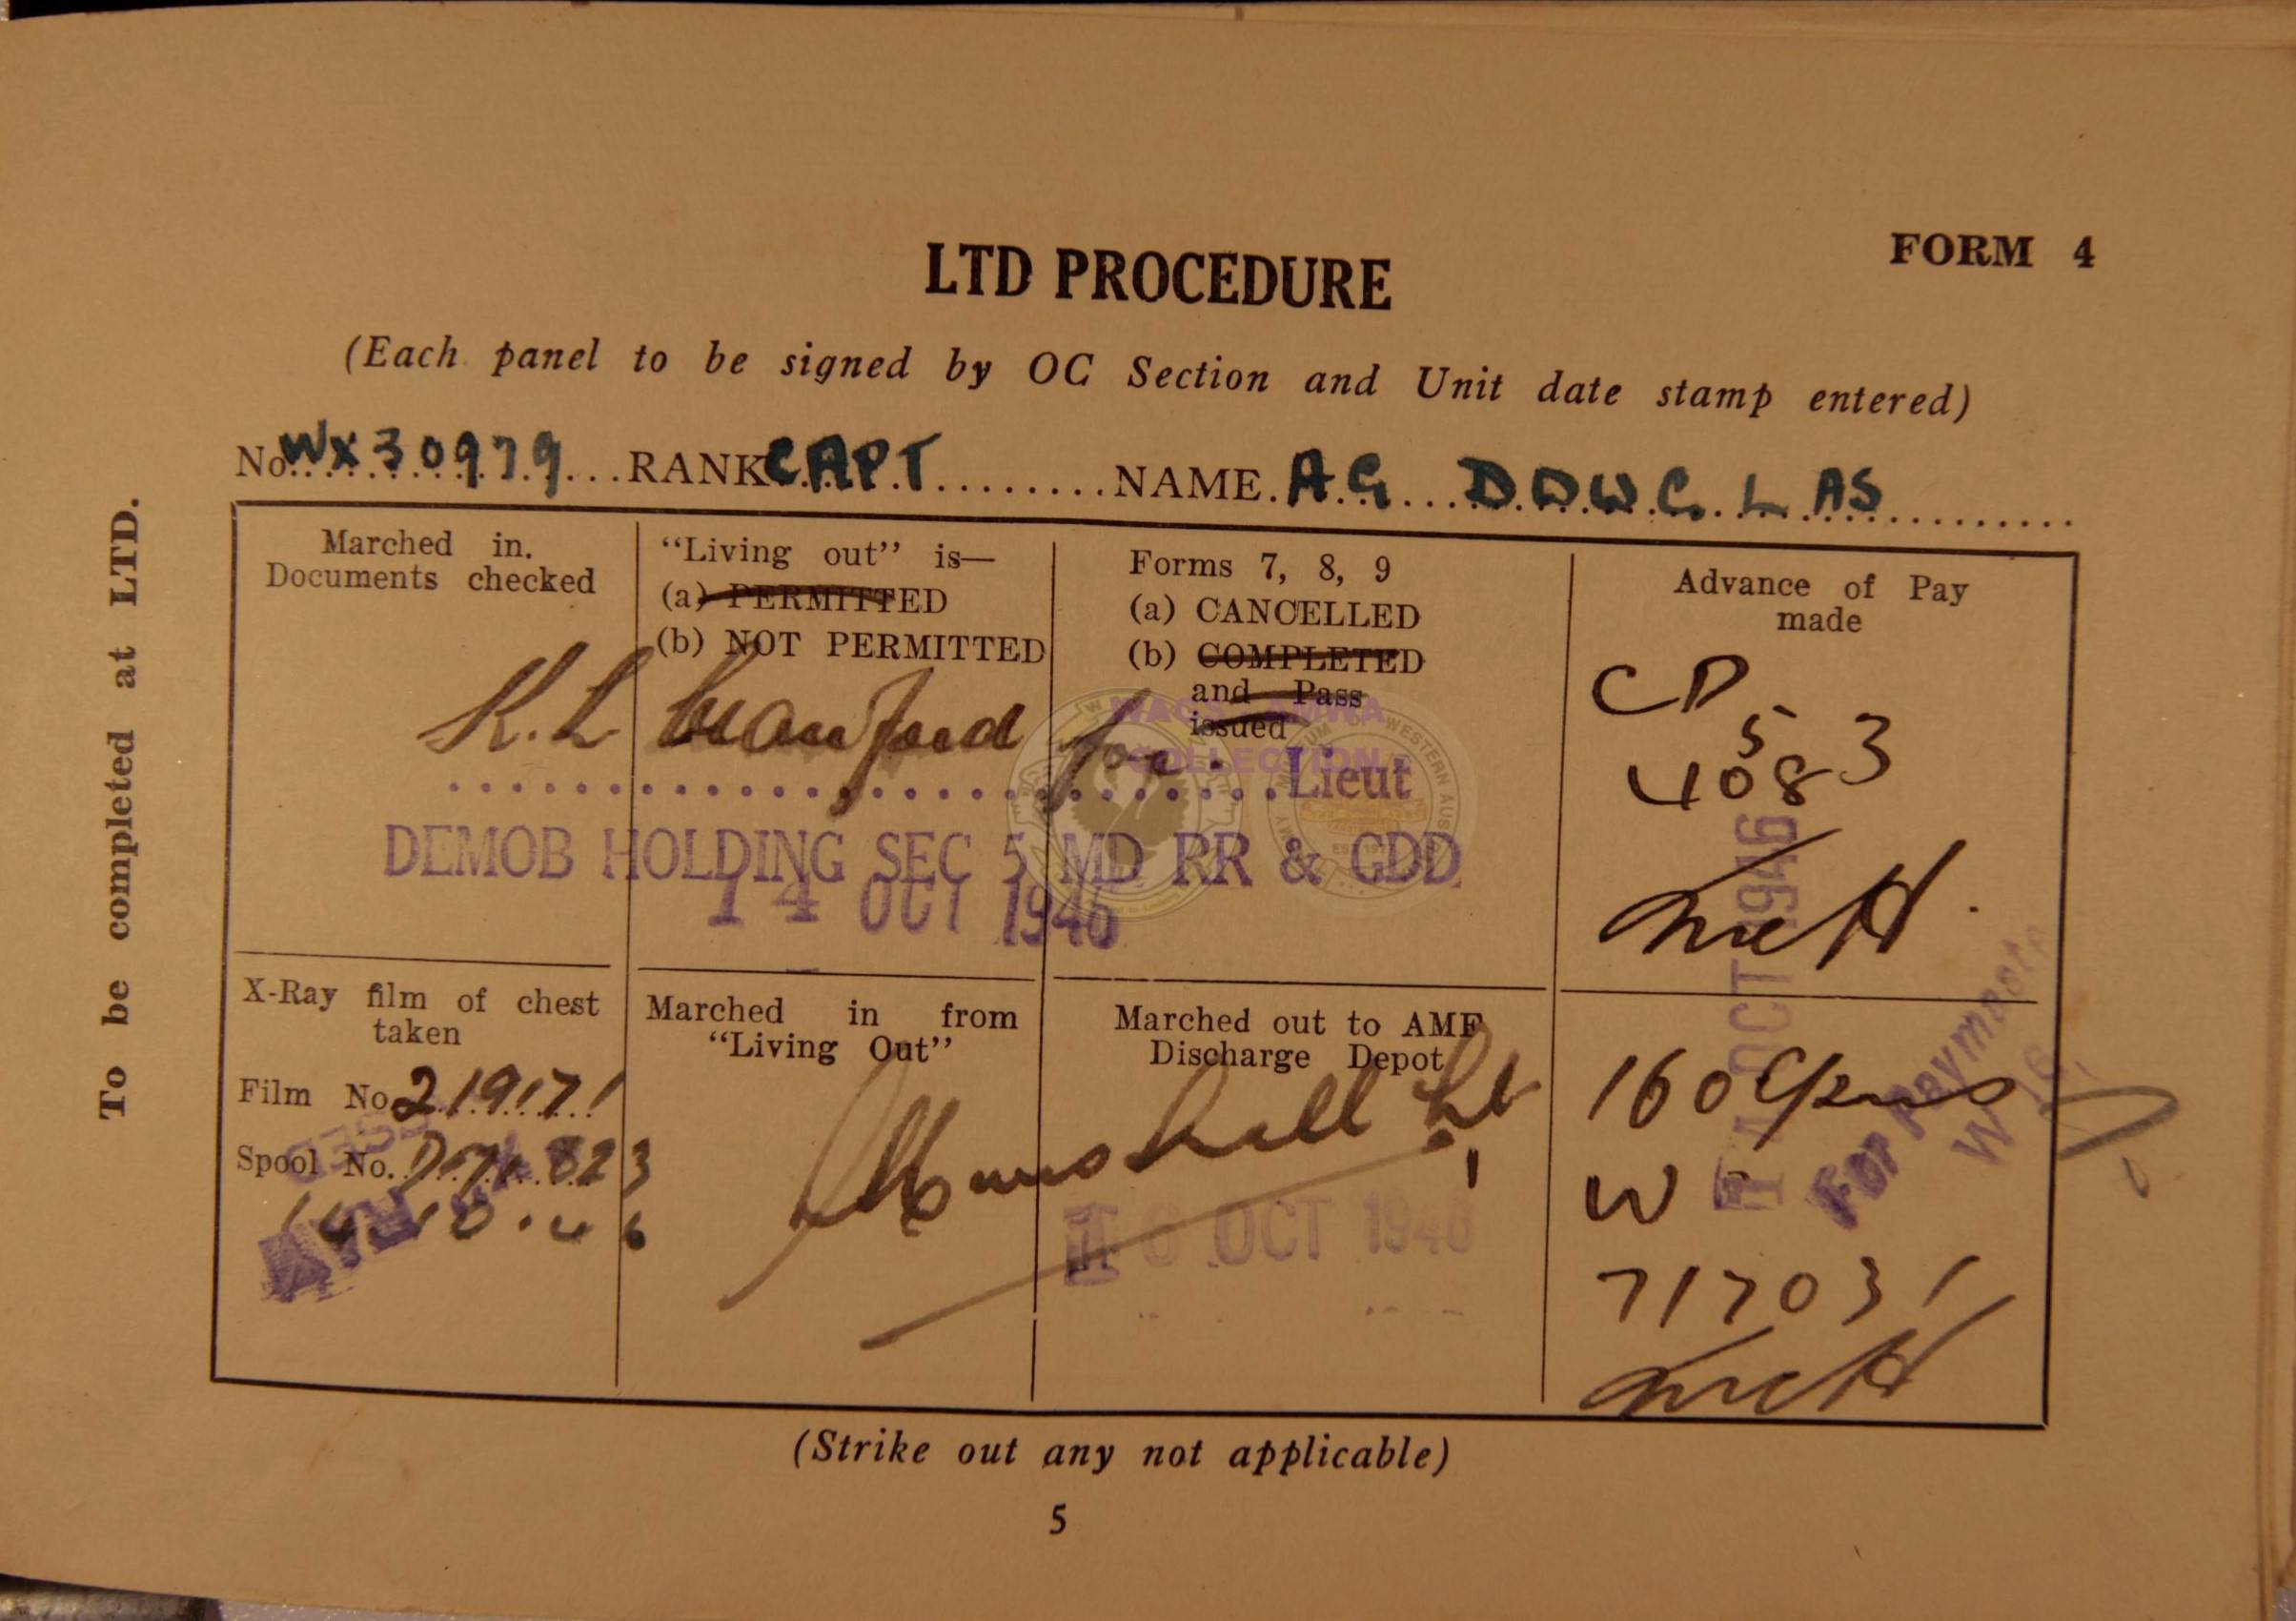 FORM 4
LTD PROCEDURE
(Each panel to be signed by OC Section and Unit date stamp entered)
No. WX30979 RANK CAPT NAME. A G DDWGLAS
To be completed at LTD.
Marched in.
Documents checked
"Living out" is—
(a) PERMITTED
(b) NOT PERMITTED
Forms 7, 8, 9
(a) CANCELLED
(b) COMPLETED
and Pass
issued
Advance of Pay
made
K. L. Crawford for Lieut
DEMOB HOLDING SEC 5 MD RR & GDD
14 OCT 1946
WAGS AMWA
COLLECTION
CD
5
4083
OCT 1946
X-Ray film of chest
taken
Film No. 219171
Spool No.
14.10.46
Marched in from
"Living Out"
Marched out to AMF
Discharge Depot
Marshall Lt
16 OCT 1946
160
W
717031
For Paymaster
(Strike out any not applicable)
5